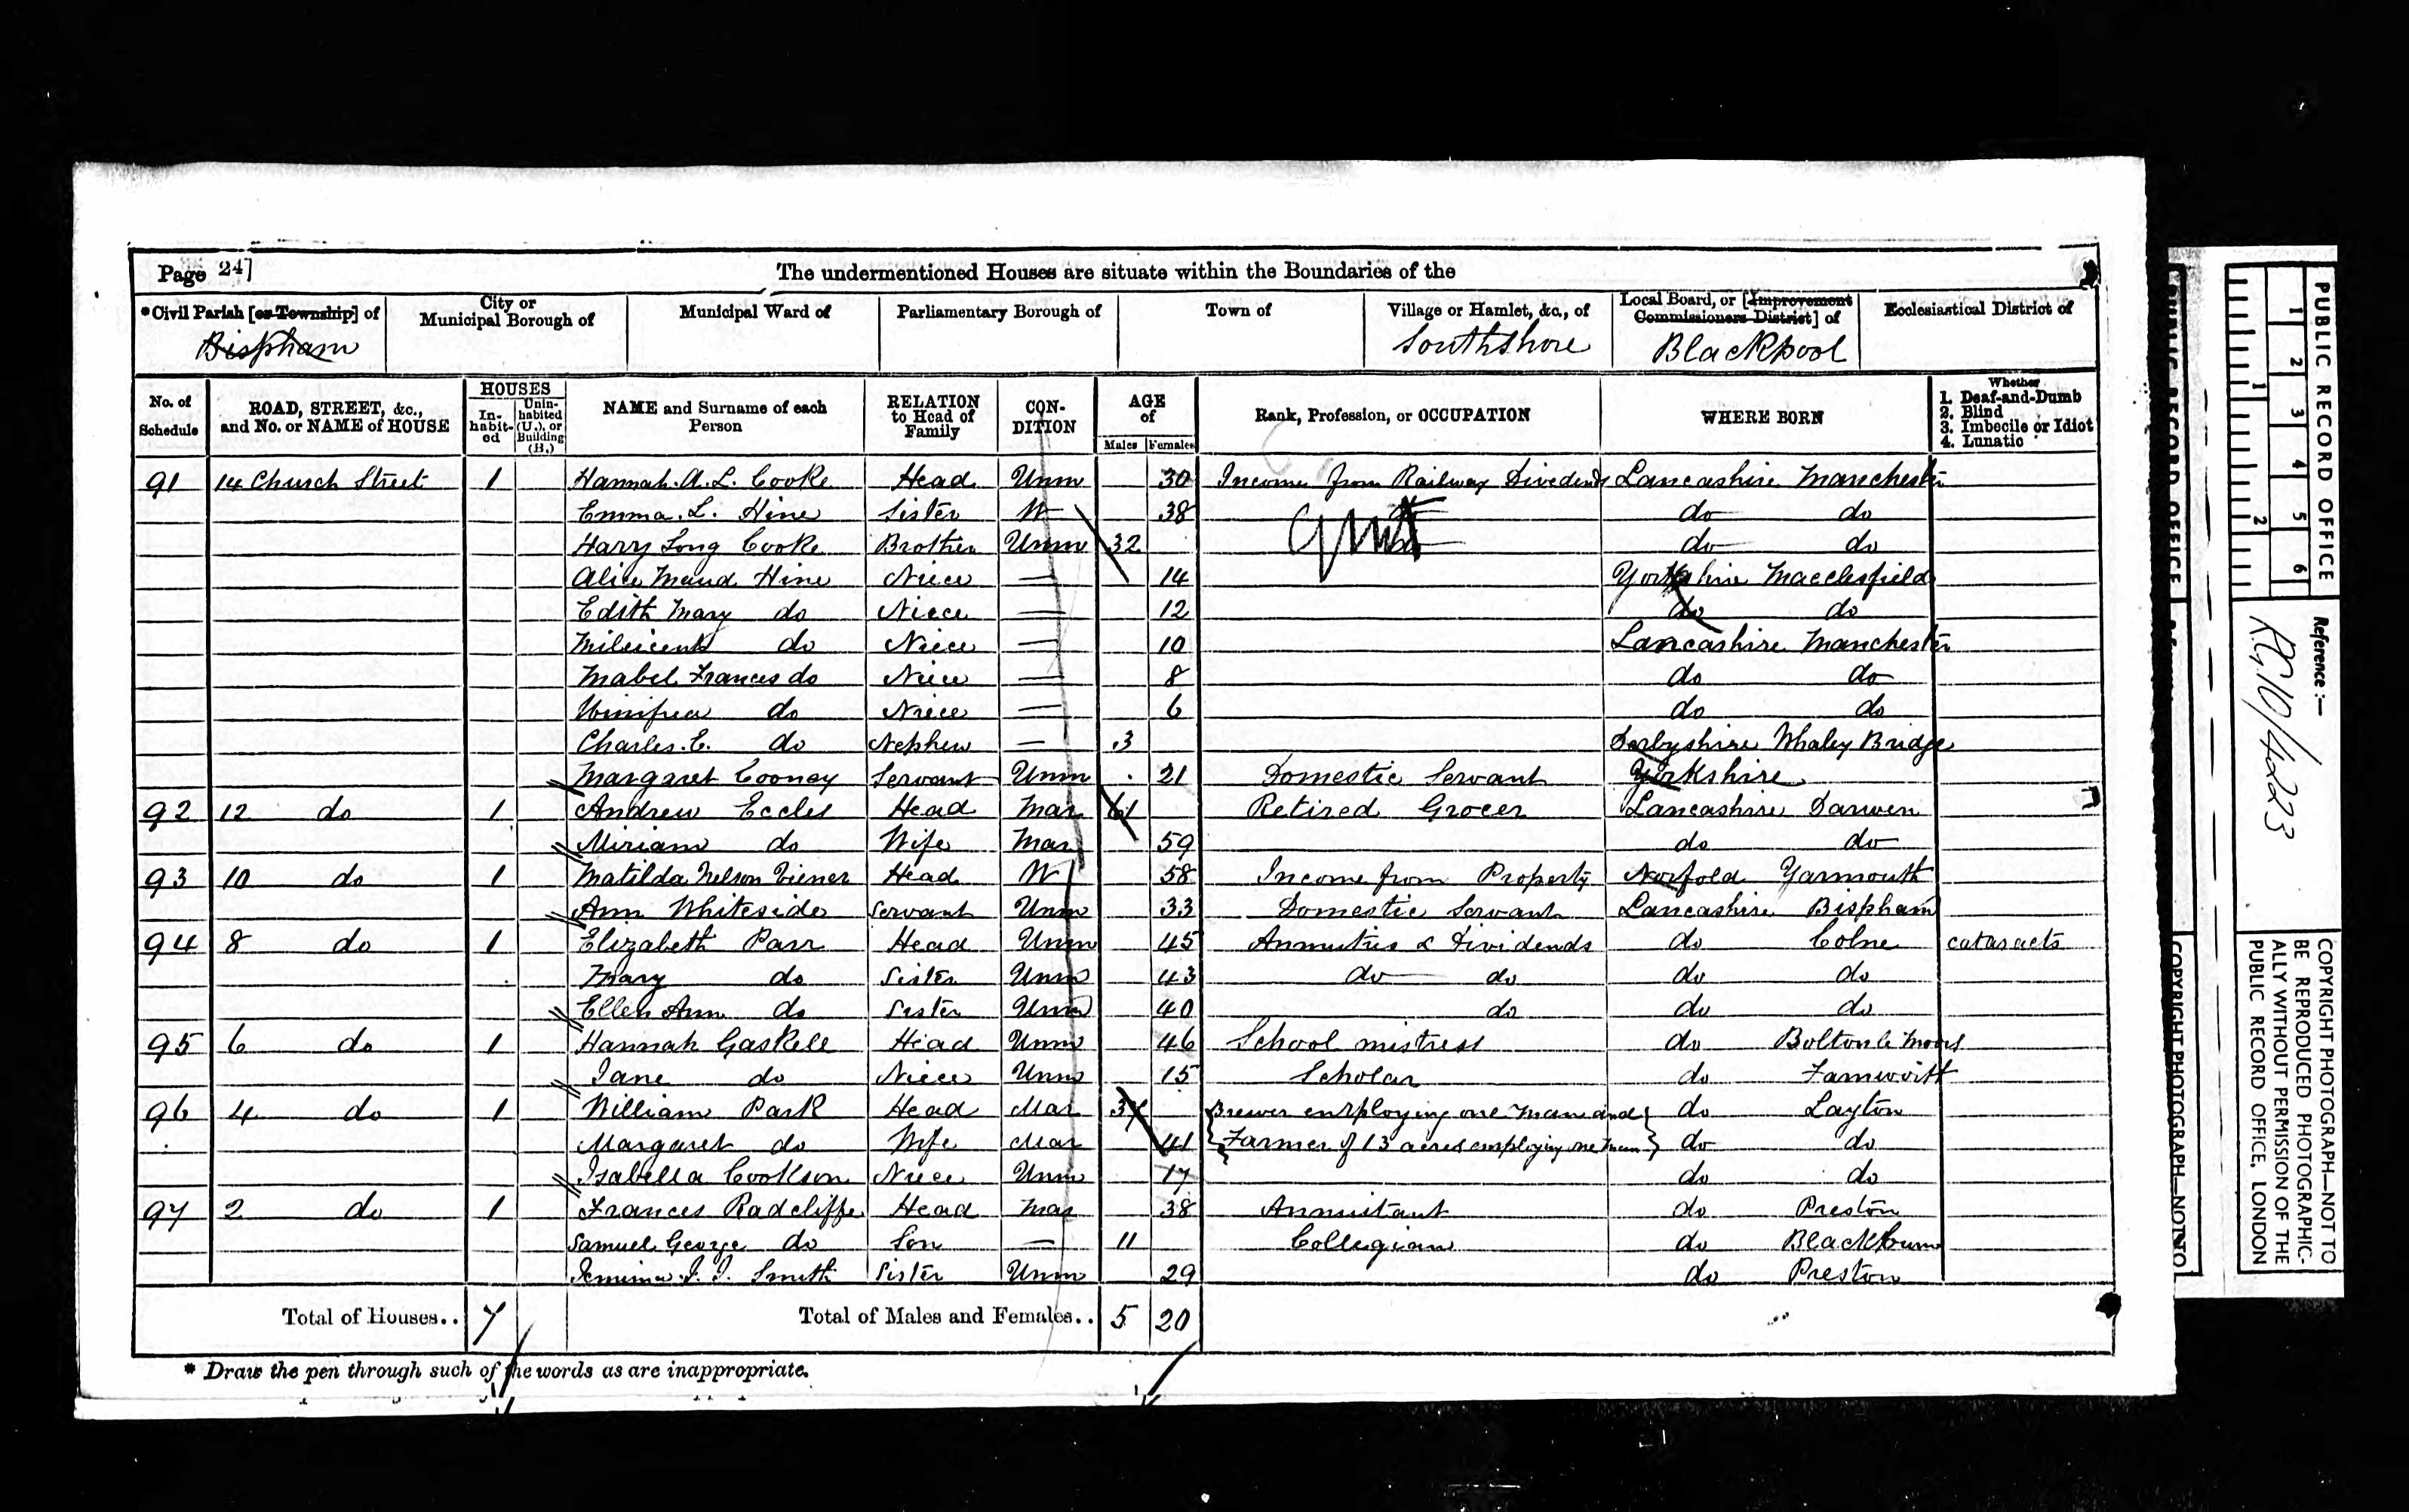 Page 24]
The undermentioned Houses are situate within the Boundaries of the
*Civil Parish [or Township] of
Bispham
City or
Municipal Borough of
Municipal Ward of
Parliamentary Borough of
Town of
Village or Hamlet, &c., of
Southshore
Local Board, or [Improvement
Commissioners District] of
Blackpool
Ecclesiastical District of
No. of
Schedule
ROAD, STREET, &c.,
and No. or NAME of HOUSE
HOUSES
In-
habit-
ed
Unin-
habited
(U.), or
Building
(B.)
NAME and Surname of each
Person
RELATION
to Head of
Family
CON-
DITION
AGE
of
Males Females
Rank, Profession, or OCCUPATION
WHERE BORN
Whether
1. Deaf-and-Dumb
2. Blind
3. Imbecile or Idiot
4. Lunatic
91 14 Church Street 1 Hannah. A. L. Cooke Head Unm 30 Income from Railway Dividends Lancashire Manchester
Emma. L. Hine Sister W 38 do do
Harry Long Cooke Brother Unm 32 do do
Alice Maud Hine Niece — 14 Yorkshire Macclesfield
Edith Mary do Niece — 12 do do
Milicent do Niece — 10 Lancashire Manchester
Mabel Frances do Niece — 8 do do
Winifred do Niece — 6 do do
Charles. E. do Nephew — 3 Derbyshire Whaley Bridge
Margaret Cooney Servant Unm 21 Domestic Servant Yorkshire
92 12 do 1 Andrew Eccles Head Mar 61 Retired Grocer Lancashire Darwen
Miriam do Wife Mar 59 do do
93 10 do 1 Matilda Nelson Viener Head W 58 Income from Property Norfold Yarmouth
Ann Whiteside Servant Unm 33 Domestic Servant Lancashire Bispham
94 8 do 1 Elizabeth Parr Head Unm 45 Annuities & Dividends do Colne cataracts
Mary do Sister Unm 43 do do do do
Ellen Ann do Sister Unm 40 do do do
95 6 do 1 Hannah Gaskell Head Unm 46 School mistress do Bolton le Moors
Jane do Niece Unm 15 Scholar do Farnworth
96 4 do 1 William Park Head Mar 37 Brewer employing one man and do Layton
Margaret do Wife Mar 41 Farmer of 13 acres employing one man do do
Isabella Cookson Niece Unm 17 do do
97 2 do 1 Frances Radcliffe Head Mar 38 Annuitant do Preston
Samuel George do Son — 11 Collegian do Blackburn
Jemima J. J. Smith Sister Unm 29 do Preston
Total of Houses.. 7 Total of Males and Females.. 5 20
* Draw the pen through such of the words as are inappropriate.
PUBLIC RECORD OFFICE
1 2 3 4 5 6
1 2
Reference:—
RG 10/4223
COPYRIGHT PHOTOGRAPH—NOT TO
BE REPRODUCED PHOTOGRAPHIC-
ALLY WITHOUT PERMISSION OF THE
PUBLIC RECORD OFFICE, LONDON
PUBLIC RECORD OFFICE
COPYRIGHT PHOTOGRAPH—NOT TO